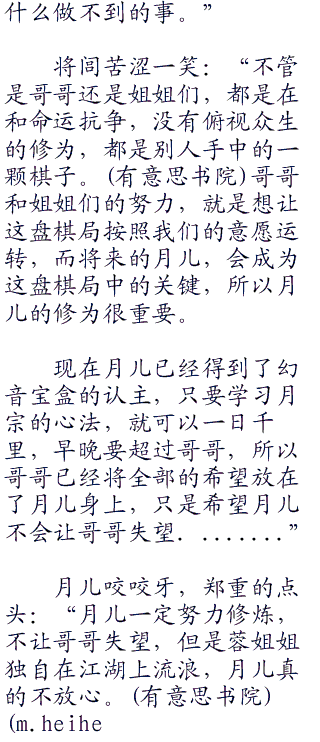 什么做不到的事。”
将闾苦涩一笑：“不管
是哥哥还是姐姐们，都是在
和命运抗争，没有俯视众生
的修为，都是别人手中的一
颗棋子。(有意思书院)哥哥
和姐姐们的努力，就是想让
这盘棋局按照我们的意愿运
转，而将来的月儿，会成为
这盘棋局中的关键，所以月
儿的修为很重要。
现在月儿已经得到了幻
音宝盒的认主，只要学习月
宗的心法，就可以一日千
里，早晚要超过哥哥，所以
哥哥已经将全部的希望放在
了月儿身上，只是希望月儿
不会让哥哥失望．．．．．．．．”
月儿咬咬牙，郑重的点
头：“月儿一定努力修炼，
不让哥哥失望，但是蓉姐姐
独自在江湖上流浪，月儿真
的不放心。(有意思书院)
(m.heihe